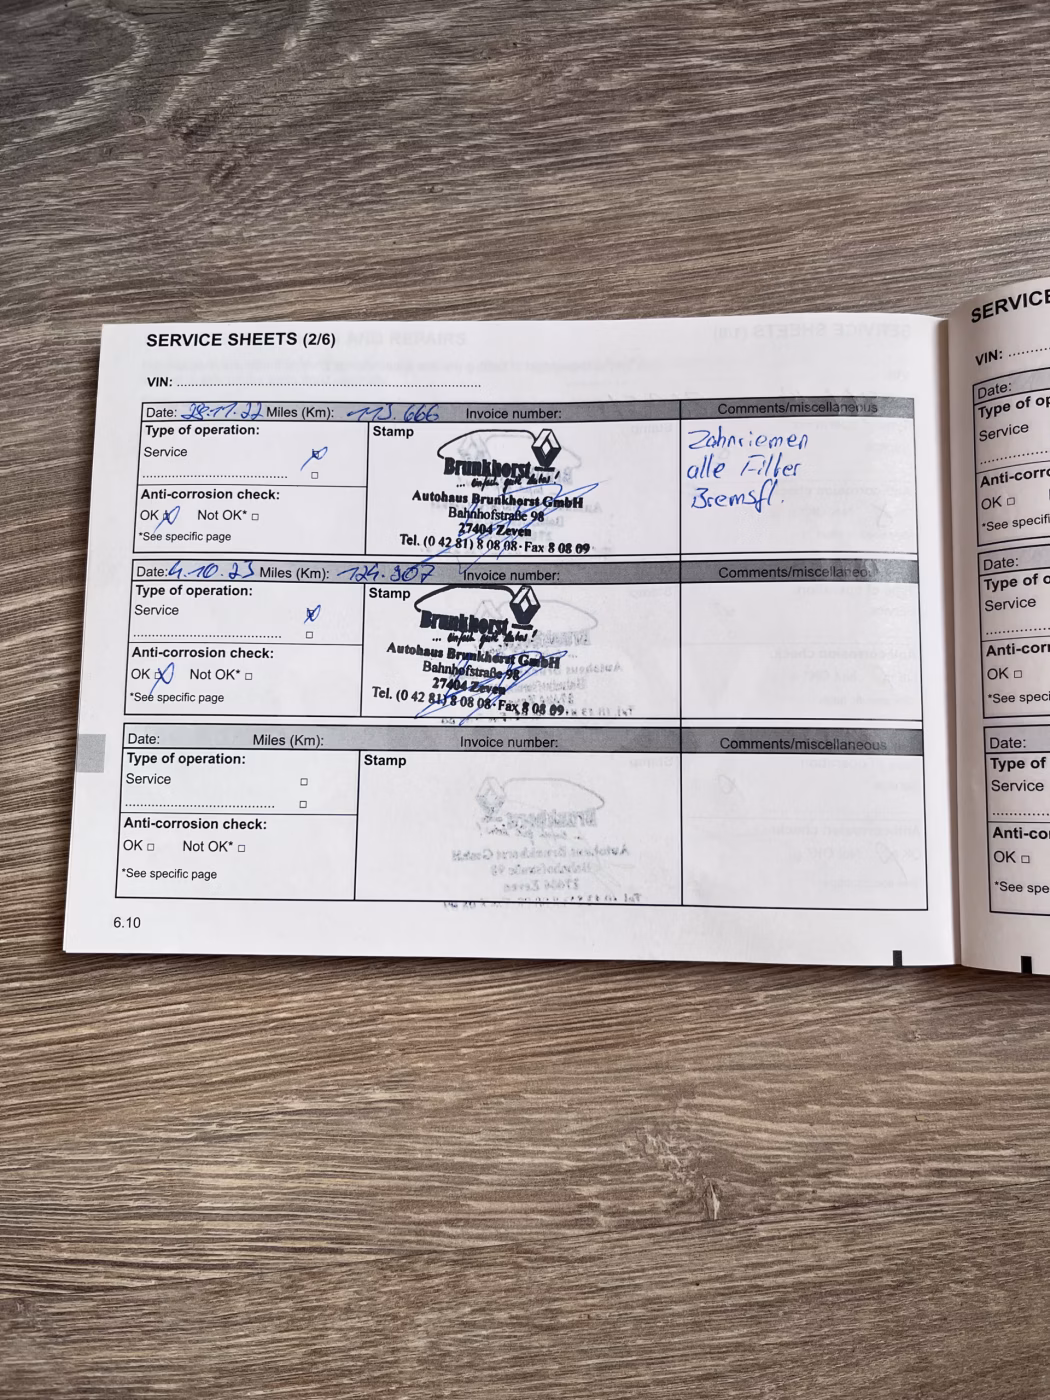 SERVICE SHEETS (2/6)
VIN:
Date: 28.11.22 Miles (Km): 113.666 Invoice number: Comments/miscellaneous
Type of operation:
Service
Anti-corrosion check:
OK Not OK* □
*See specific page
Stamp
Brunkhorst
... einfach gute Autos!
Autohaus Brunkhorst GmbH
Bahnhofstraße 98
27404 Zeven
Tel. (0 42 81) 8 08 08 · Fax 8 08 09
Zahnriemen
alle Filter
Bremsfl.
Date: 4.10.23 Miles (Km): 124.907 Invoice number: Comments/miscellaneous
Type of operation:
Service
Anti-corrosion check:
OK Not OK* □
*See specific page
Stamp
Brunkhorst
... einfach gute Autos!
Autohaus Brunkhorst GmbH
Bahnhofstraße 98
27404 Zeven
Tel. (0 42 81) 8 08 08 · Fax 8 08 09
Date: Miles (Km): Invoice number: Comments/miscellaneous
Type of operation:
Service □
Anti-corrosion check:
OK □ Not OK* □
*See specific page
Stamp
6.10
SERVICE
VIN:
Date:
Type of op
Service
Anti-corro
OK □
*See specifi
Date:
Type of o
Service
Anti-corr
OK □
*See speci
Date:
Type of
Service
Anti-co
OK □
*See spe